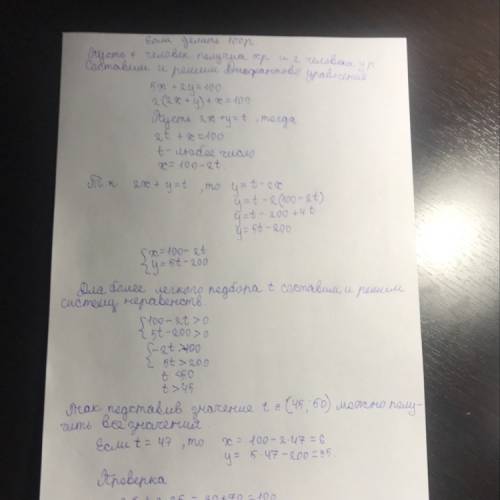 Если делить 100р
Пусть 4 человек получил x р и 2 человека y р
Составим и решим Диофантово уравнение
5x + 2y = 100
2(2x+y)+x=100
Пусть 2x+y=t, тогда
2t + x = 100
t - любое число
x = 100 - 2t
Т.к 2x + y = t, то y = t - 2x
y = t - 2(100 - 2t)
y = t - 200 + 4t
y = 5t - 200
{x = 100 - 2t
{y = 5t - 200
Для более легкого подбора t составим и решим
систему неравенств.
{100 - 2t > 0
{5t - 200 > 0
{-2t > 100
{5t > 200
t < 50
t > 45
Так подставив значение t = (45; 50) можно полу-
чить все значения
Если t = 47, то x = 100 - 2·47 = 6
y = 5·47 - 200 = 35
Проверка